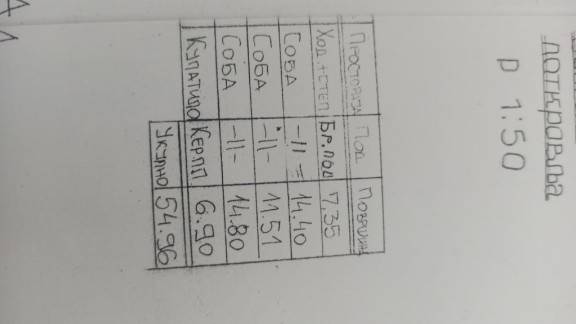 поткровља
Р 1:50
Просторија Под Површина
Ход.+степ Бр.под 7,35
Соба -||- 14.40
Соба -||- 11.51
Соба -||- 14.80
Купатило Кер.пл 6.90
Укупно 54.96